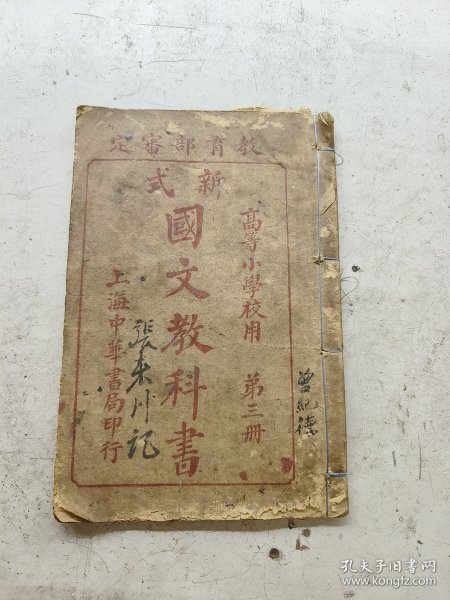 教育部審定
新式
高等小學校用 第三册
國文教科書
上海中華書局印行
張来川記
曾紀德
孔夫子旧书网
www.kongfz.com